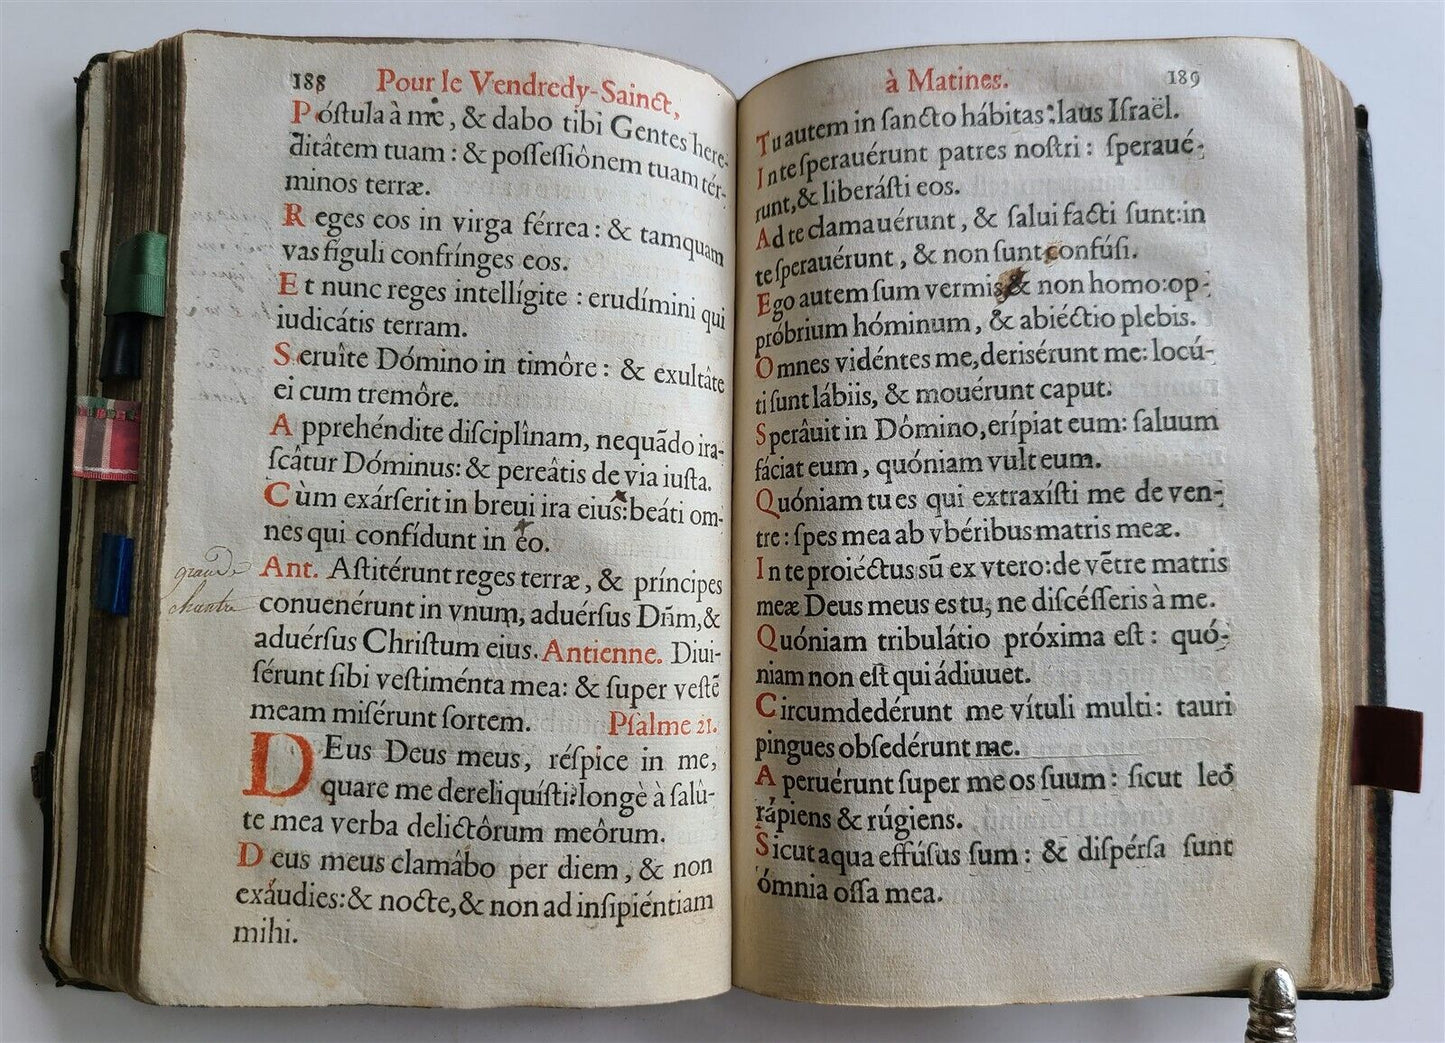 188 Pour le Vendredy-Sainct,
Póſtula à me, & dabo tibi Gentes here-
ditâtem tuam : & poſſeſſiônem tuam tér-
minos terræ.
Reges eos in virga férrea : & tamquam
vas fíguli confrínges eos.
Et nunc reges intellígite : erudímini qui
iudicátis terram.
Seruîte Dómino in timôre : & exultâte
ei cum tremôre.
Apprehéndite diſciplînam, nequãdo ira-
ſcâtur Dóminus: & pereâtis de via iuſta.
Cùm exárſerit in breui ira eius: beáti om-
nes qui confídunt in eo.
grande
chantre
Ant. Aſtitérunt reges terræ, & príncipes
conuenérunt in vnum, aduérſus Dñm, &
aduérſus Chriſtum eius. Antienne. Diui-
ſérunt ſibi veſtiménta mea: & ſuper veſtẽ
meam miſérunt ſortem. Pſalme 21.
DEus Deus meus, réſpice in me,
quare me dereliquíſti: longè à ſalû-
te mea verba delictôrum meôrum.
Deus meus clamâbo per diem, & non
exáudies: & nocte, & non ad inſipiéntiam
mihi.
à Matines. 189
Tu autem in ſancto hábitas: laus Iſraël.
In te ſperauérunt patres noſtri : ſperaué-
runt, & liberáſti eos.
Ad te clamauérunt, & ſalui facti ſunt: in
te ſperauérunt, & non ſunt confúſi.
Ego autem ſum vermis & non homo: op-
próbrium hóminum, & abiéctio plebis.
Omnes vidéntes me, deriſérunt me: locú-
ti ſunt lábiis, & mouérunt caput.
Sperâuit in Dómino, erípiat eum: ſaluum
fáciat eum, quóniam vult eum.
Quóniam tu es qui extraxíſti me de ven-
tre : ſpes mea ab vbéribus matris meæ.
In te proiéctus sũ ex vtero: de vẽtre matris
meæ Deus meus es tu, ne diſcéſſeris à me.
Quóniam tribulátio próxima eſt : quó-
niam non eſt qui ádiuuet.
Circumdedérunt me vítuli multi: tauri
pingues obſedérunt me.
Aperuérunt ſuper me os ſuum : ſicut leo
rápiens & rúgiens.
Sicut aqua effúſus ſum : & diſpérſa ſunt
ómnia oſſa mea.